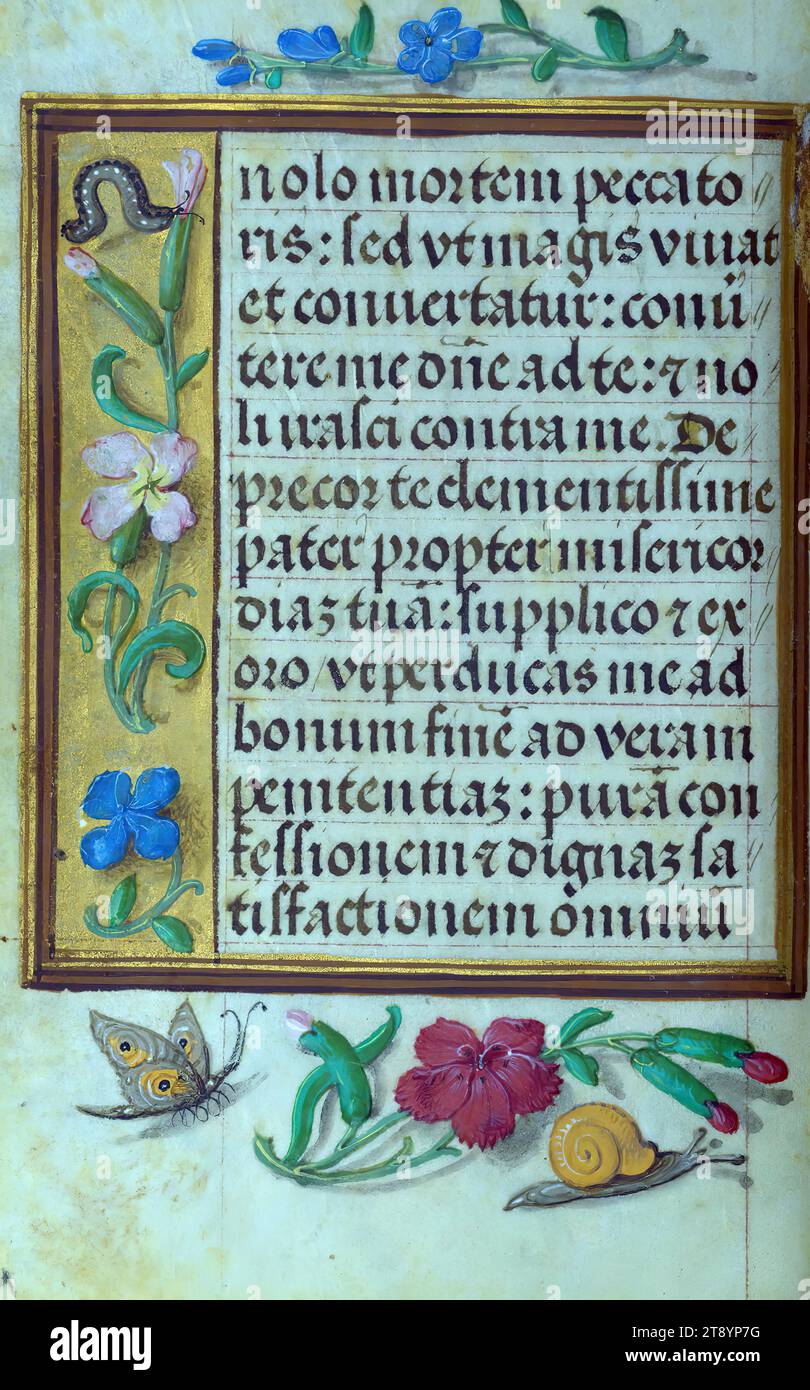 nolo mortem peccato
ris: sed vt magis viuat
et conuertatur: conũ
tere me dñe ad te: ⁊ no
li irasci contra me. De
precor te clementissime
pater propter misericor
diaꝫ tuã: supplico ⁊ ex
oro/vt perducas me ad
bonum finẽ ad veram
penitentiaꝫ: purã con
fessionem ⁊ dignaꝫ sa
tisfactionem omniũ
alamy
Image ID: 2T8YP7G
www.alamy.com